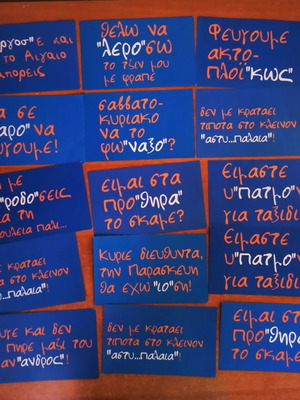 και
το Αιγαιο
θελω να
"λερο"σω
το τζιν μου
με φραπε
Φευγουμε
ακτο-
πλοϊ"κως"
σε
"να
σαββατο-
κυριακο
να το
φω"ναξο"?
δεν με κραταει
τιποτα στο κλεινον
"αστυ...παλαια"!
με
"ροδο"σεις
τη
παλι...
ειμαι στα
προ"θηρα"
το σκαμε?
Ειμαστε
υ"Πατμο"ν
για ταξιδι
με κραταει
στο κλεινον
...παλαια"!
Κυριε διευθυντα,
την Παρασκευη
θα εχω "ιο"ση!
Ειμαστε
υ"Πατμο"ν
για ταξιδι
και δεν
πηρε μαζι του
"ανδρος"!
δεν με κραταει
τιποτα στο κλεινον
"αστυ...παλαια"!
Ειμαι στα
προ"θηρα
το σκαμε